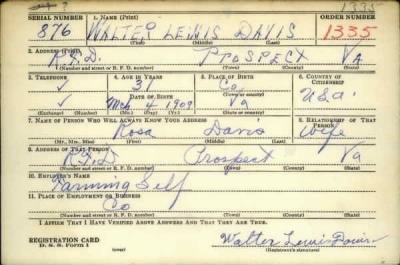 1335
SERIAL NUMBER 1. NAME (Print) ORDER NUMBER
876 WALTER LEWIS DAVIS 1335
(First) (Middle) (Last)
2. ADDRESS (Print)
R.F.D. PROSPECT VA
(Number and street or R. F. D. number) (Town) (County) (State)
3. TELEPHONE 4. AGE IN YEARS 5. PLACE OF BIRTH 6. COUNTRY OF CITIZENSHIP
✓ 31 Co
DATE OF BIRTH (Town or county)
✓ Mch 4 1909 Va U.S.A.
(Exchange) (Number) (Mo.) (Day) (Yr.) (State or country)
7. NAME OF PERSON WHO WILL ALWAYS KNOW YOUR ADDRESS 8. RELATIONSHIP OF THAT PERSON
Rosa Davis Wife
(Mr., Mrs., Miss) (First) (Middle) (Last)
9. ADDRESS OF THAT PERSON
R.F.D Prospect Va
(Number and street or R. F. D. number) (Town) (County) (State)
10. EMPLOYER'S NAME
Farming Self
11. PLACE OF EMPLOYMENT OR BUSINESS
Co
(Number and street or R. F. D. number) (Town) (County) (State)
I AFFIRM THAT I HAVE VERIFIED ABOVE ANSWERS AND THAT THEY ARE TRUE.
REGISTRATION CARD
D. S. S. Form 1 (over) Walter Lewis Davis
(Registrant's signature)